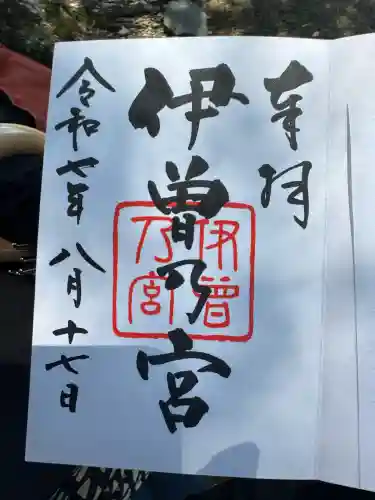 奉拝
伊曽乃宮
伊曽
乃宮
令和七年八月十七日